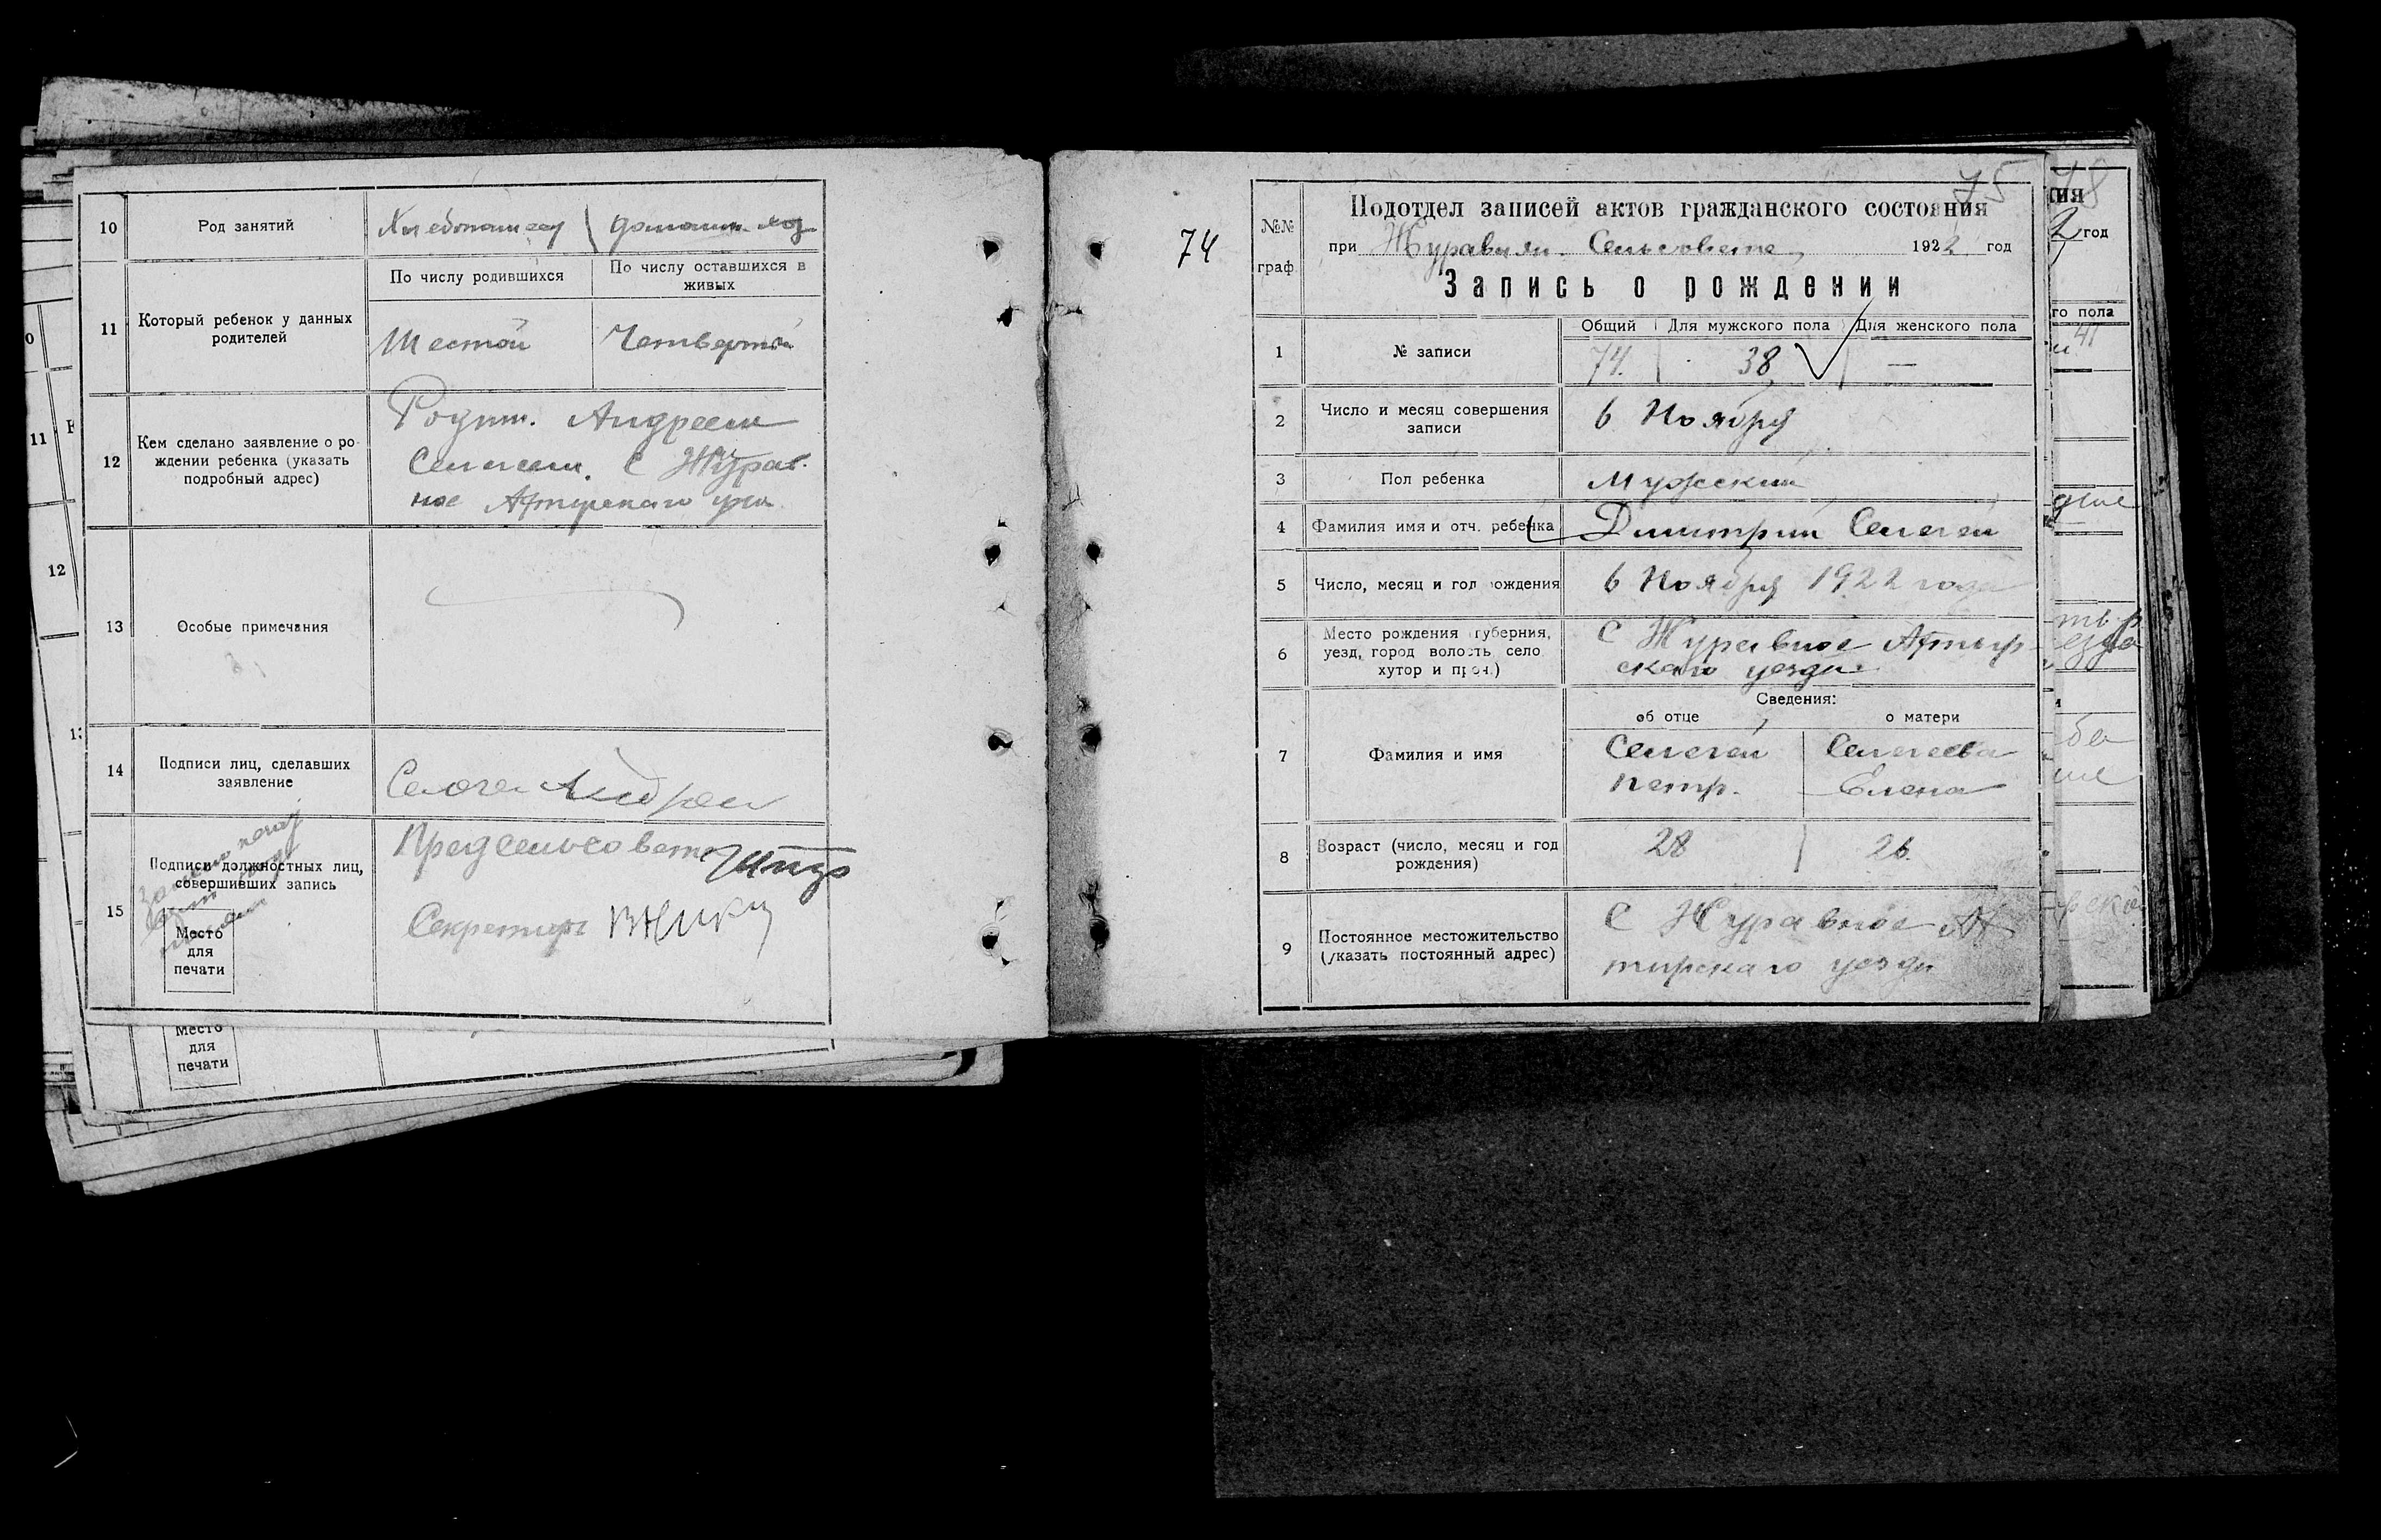 10
Род занятий
Хлебопашец | домашн. хоз
11
Который ребенок у данных
родителей
По числу родившихся
По числу оставшихся в
живых
Шестой
Четвертой
12
Кем сделано заявление о ро-
ждении ребенка (указать
подробный адрес)
Родит. Андреем
Селегеем. С Журав.
ное Ахтырскаго уез.
13
Особые примечания
14
Подписи лиц, сделавших
заявление
Селегей Андрей
15
Подписи должностных лиц,
совершивших запись
Место
для
печати
Предсельсовета
Секретарь
Место
для
печати
74
75
№№
граф.
Подотдел записей актов гражданского состояния
при Журавлян. Сельсовете 1922 год
Запись о рождении
1
№ записи
Общий Для мужского пола Для женского пола
74. 38 —
2
Число и месяц совершения
записи
6 Ноября
3
Пол ребенка
Мужский
4
Фамилия имя и отч. ребенка
Димитрий Селегей
5
Число, месяц и год рождения
6 Ноября 1922 года
6
Место рождения (губерния,
уезд, город волость, село
хутор и проч.)
С Журавное Ахтыр-
скаго уезда
7
Фамилия и имя
Сведения:
об отце
о матери
Селегей
Петр.
Селегеева
Елена
8
Возраст (число, месяц и год
рождения)
28 | 26.
9
Постоянное местожительство
(указать постоянный адрес)
С Журавное Ах
тырскаго уезда
78
ия
2 год
го пола
41